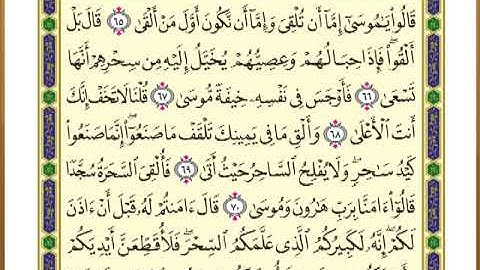 قَالُوا۟ يَـٰمُوسَىٰٓ إِمَّآ أَن تُلْقِىَ وَإِمَّآ أَن نَّكُونَ أَوَّلَ مَنْ أَلْقَىٰ ٦٥ قَالَ بَلْ
أَلْقُوا۟ ۖ فَإِذَا حِبَالُهُمْ وَعِصِيُّهُمْ يُخَيَّلُ إِلَيْهِ مِن سِحْرِهِمْ أَنَّهَا
تَسْعَىٰ ٦٦ فَأَوْجَسَ فِى نَفْسِهِۦ خِيفَةً مُّوسَىٰ ٦٧ قُلْنَا لَا تَخَفْ إِنَّكَ
أَنتَ ٱلْأَعْلَىٰ ٦٨ وَأَلْقِ مَا فِى يَمِينِكَ تَلْقَفْ مَا صَنَعُوٓا۟ ۖ إِنَّمَا صَنَعُوا۟
كَيْدُ سَـٰحِرٍ ۖ وَلَا يُفْلِحُ ٱلسَّاحِرُ حَيْثُ أَتَىٰ ٦٩ فَأُلْقِىَ ٱلسَّحَرَةُ سُجَّدًا
قَالُوٓا۟ ءَامَنَّا بِرَبِّ هَـٰرُونَ وَمُوسَىٰ ٧٠ قَالَ ءَامَنتُمْ لَهُۥ قَبْلَ أَنْ ءَاذَنَ
لَكُمْ ۖ إِنَّهُۥ لَكَبِيرُكُمُ ٱلَّذِى عَلَّمَكُمُ ٱلسِّحْرَ ۖ فَلَأُقَطِّعَنَّ أَيْدِيَكُمْ